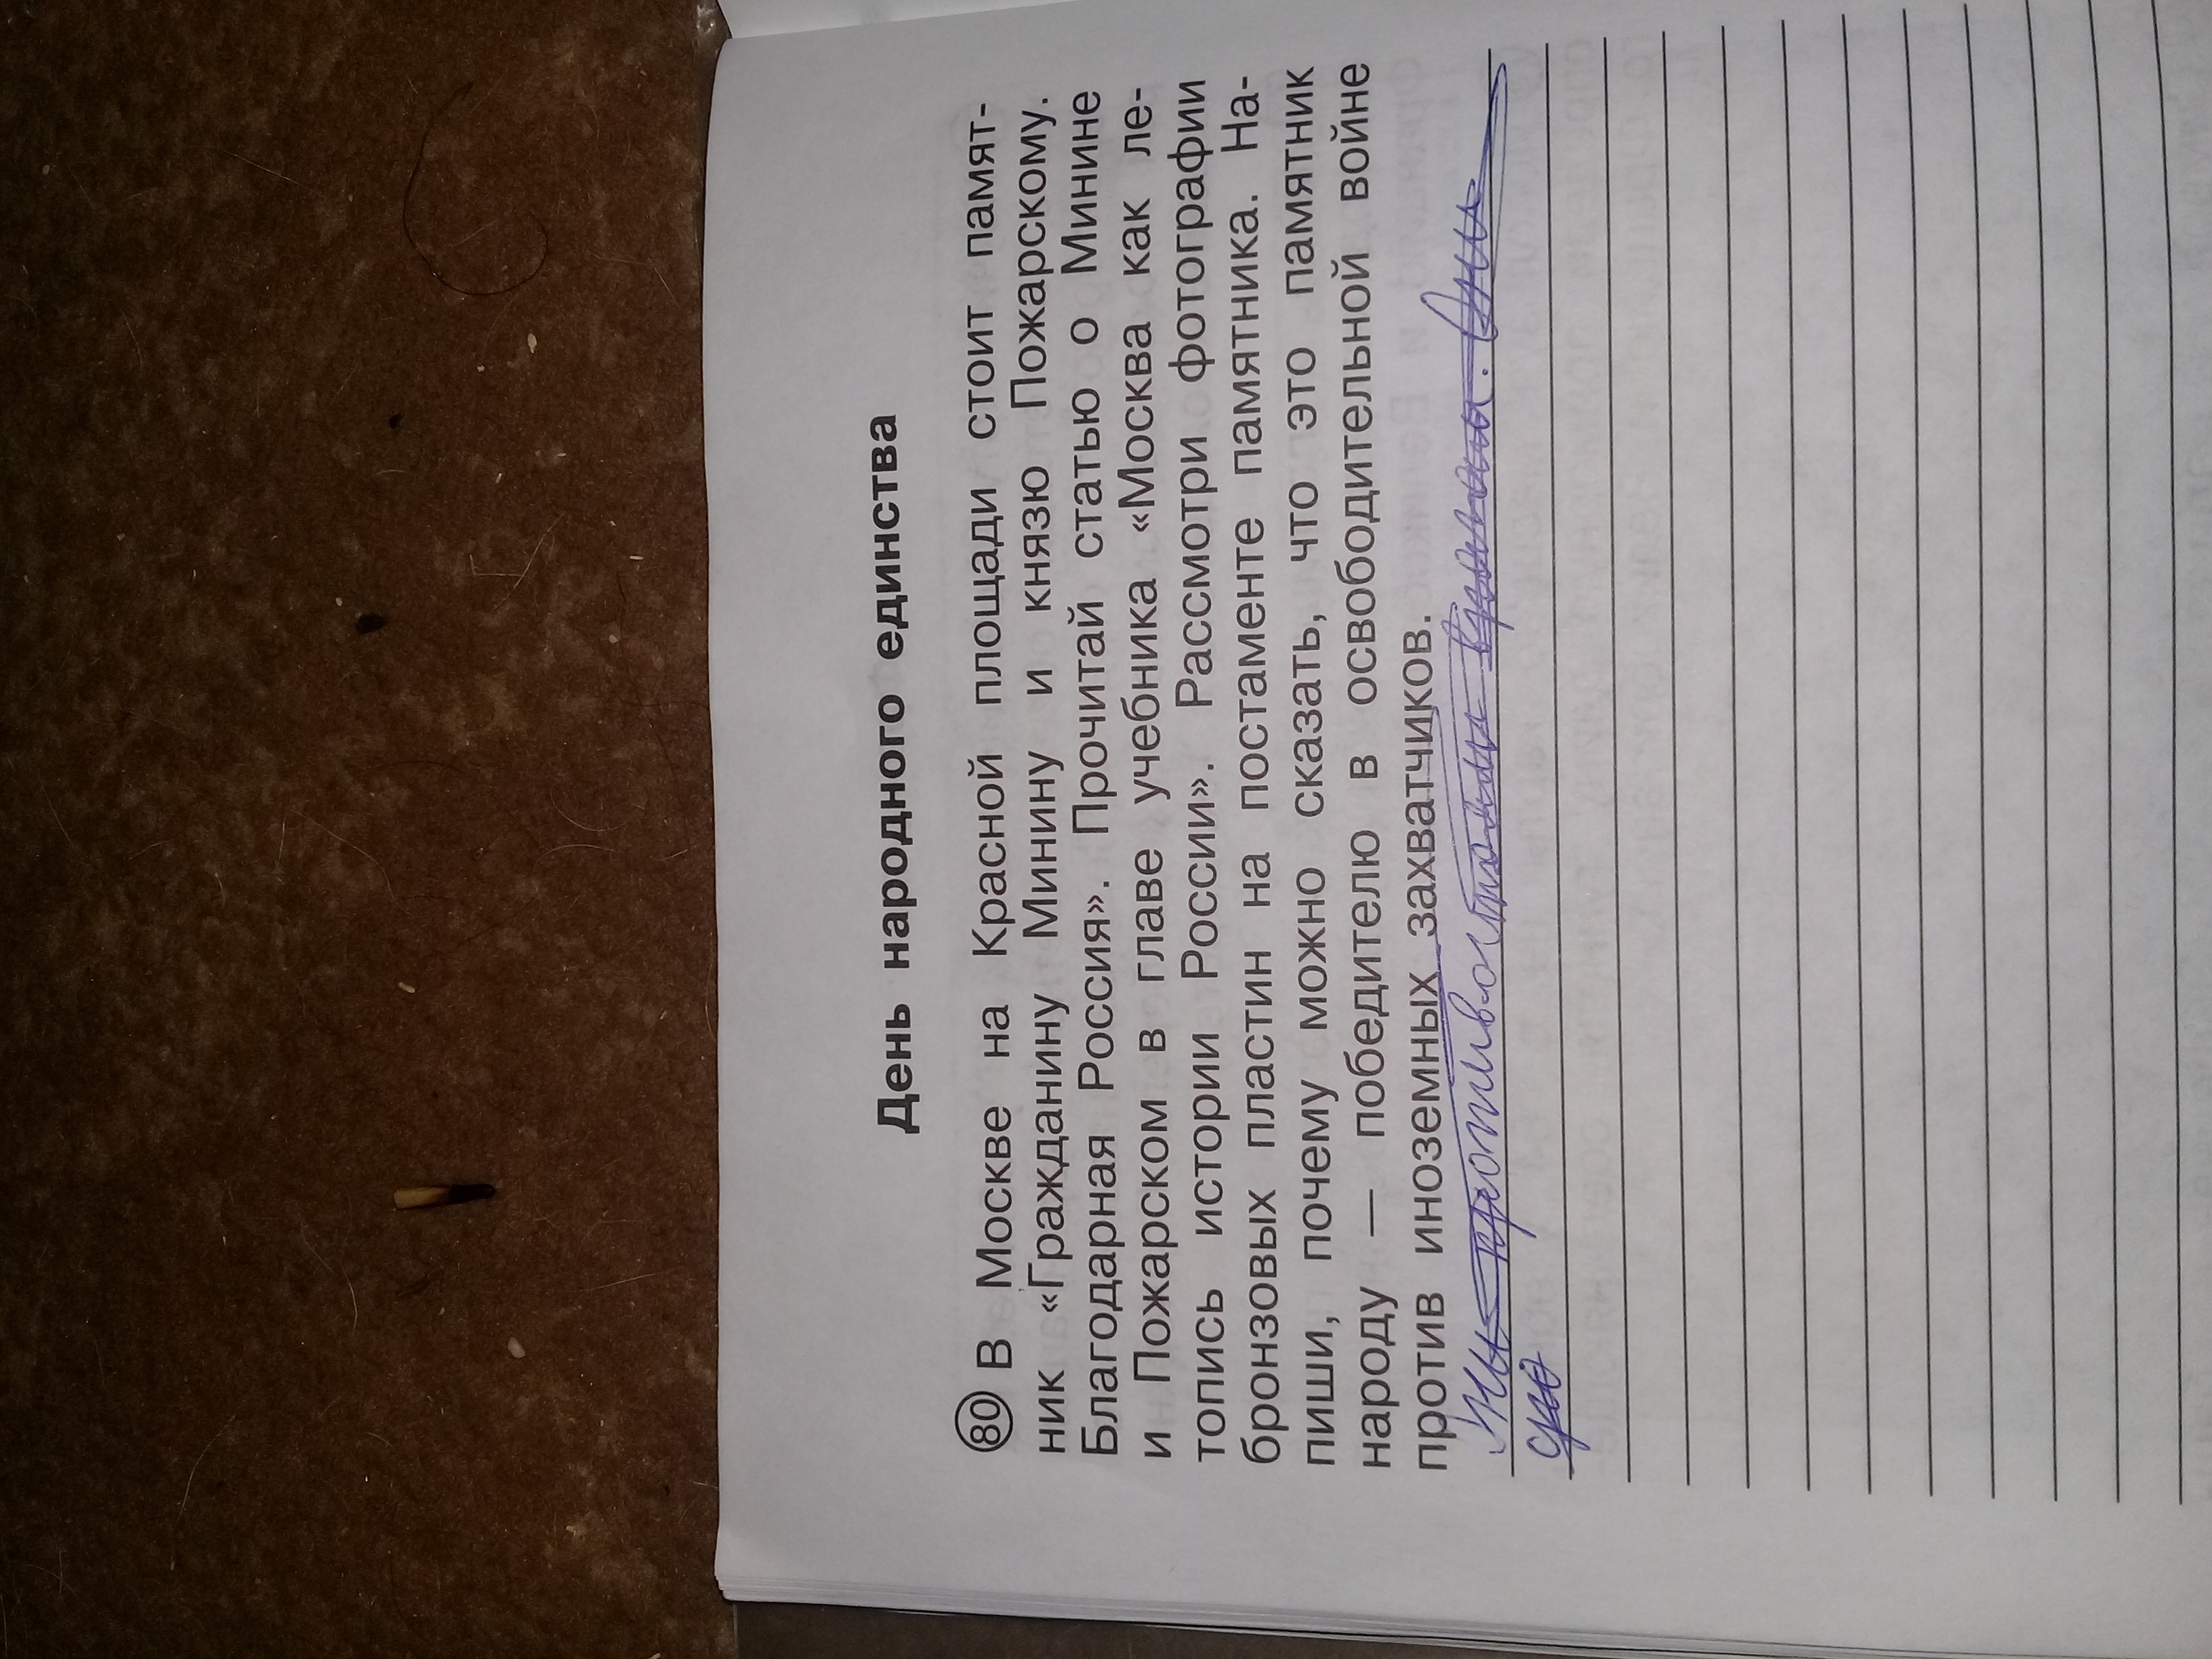 День народного единства
80 В Москве на Красной площади стоит памят-
ник «Гражданину Минину и князю Пожарскому.
Благодарная Россия». Прочитай статью о Минине
и Пожарском в главе учебника «Москва как ле-
топись истории России». Рассмотри фотографии
бронзовых пластин на постаменте памятника. На-
пиши, почему можно сказать, что это памятник
народу — победителю в освободительной войне
против иноземных захватчиков.